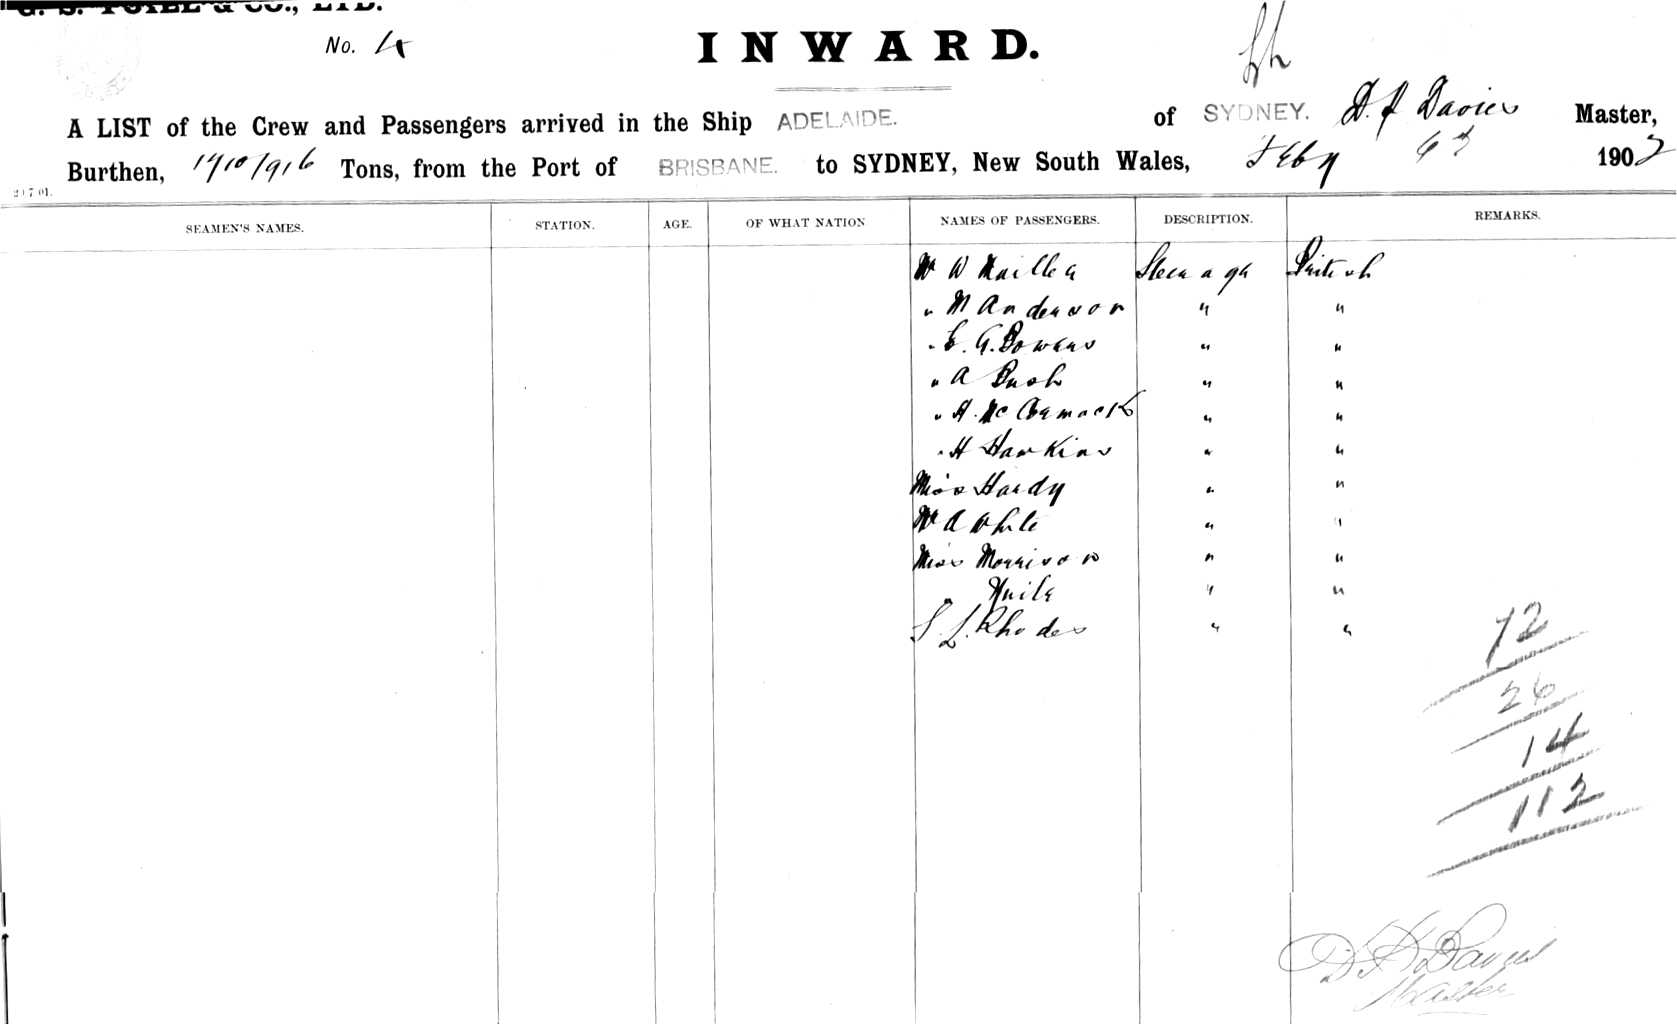 G. S. YUILL & CO., LTD.
No. 4
INWARD.
A LIST of the Crew and Passengers arrived in the Ship ADELAIDE. of SYDNEY. D. Davies Master,
Burthen, 1710/916 Tons, from the Port of BRISBANE. to SYDNEY, New South Wales, Feby 6th 1902
20 7 01.
SEAMEN'S NAMES. STATION. AGE. OF WHAT NATION NAMES OF PASSENGERS. DESCRIPTION. REMARKS.
Mr W Steerage British
" M Anderson " "
" E. G. Bowers " "
" A Bush " "
" H. McCormack " "
" H Hawkins " "
Miss Hardy " "
Mr A White " "
Miss Morrison " "
" " "
S. L. Rhodes " "
72
26
14
112
Davies
Master